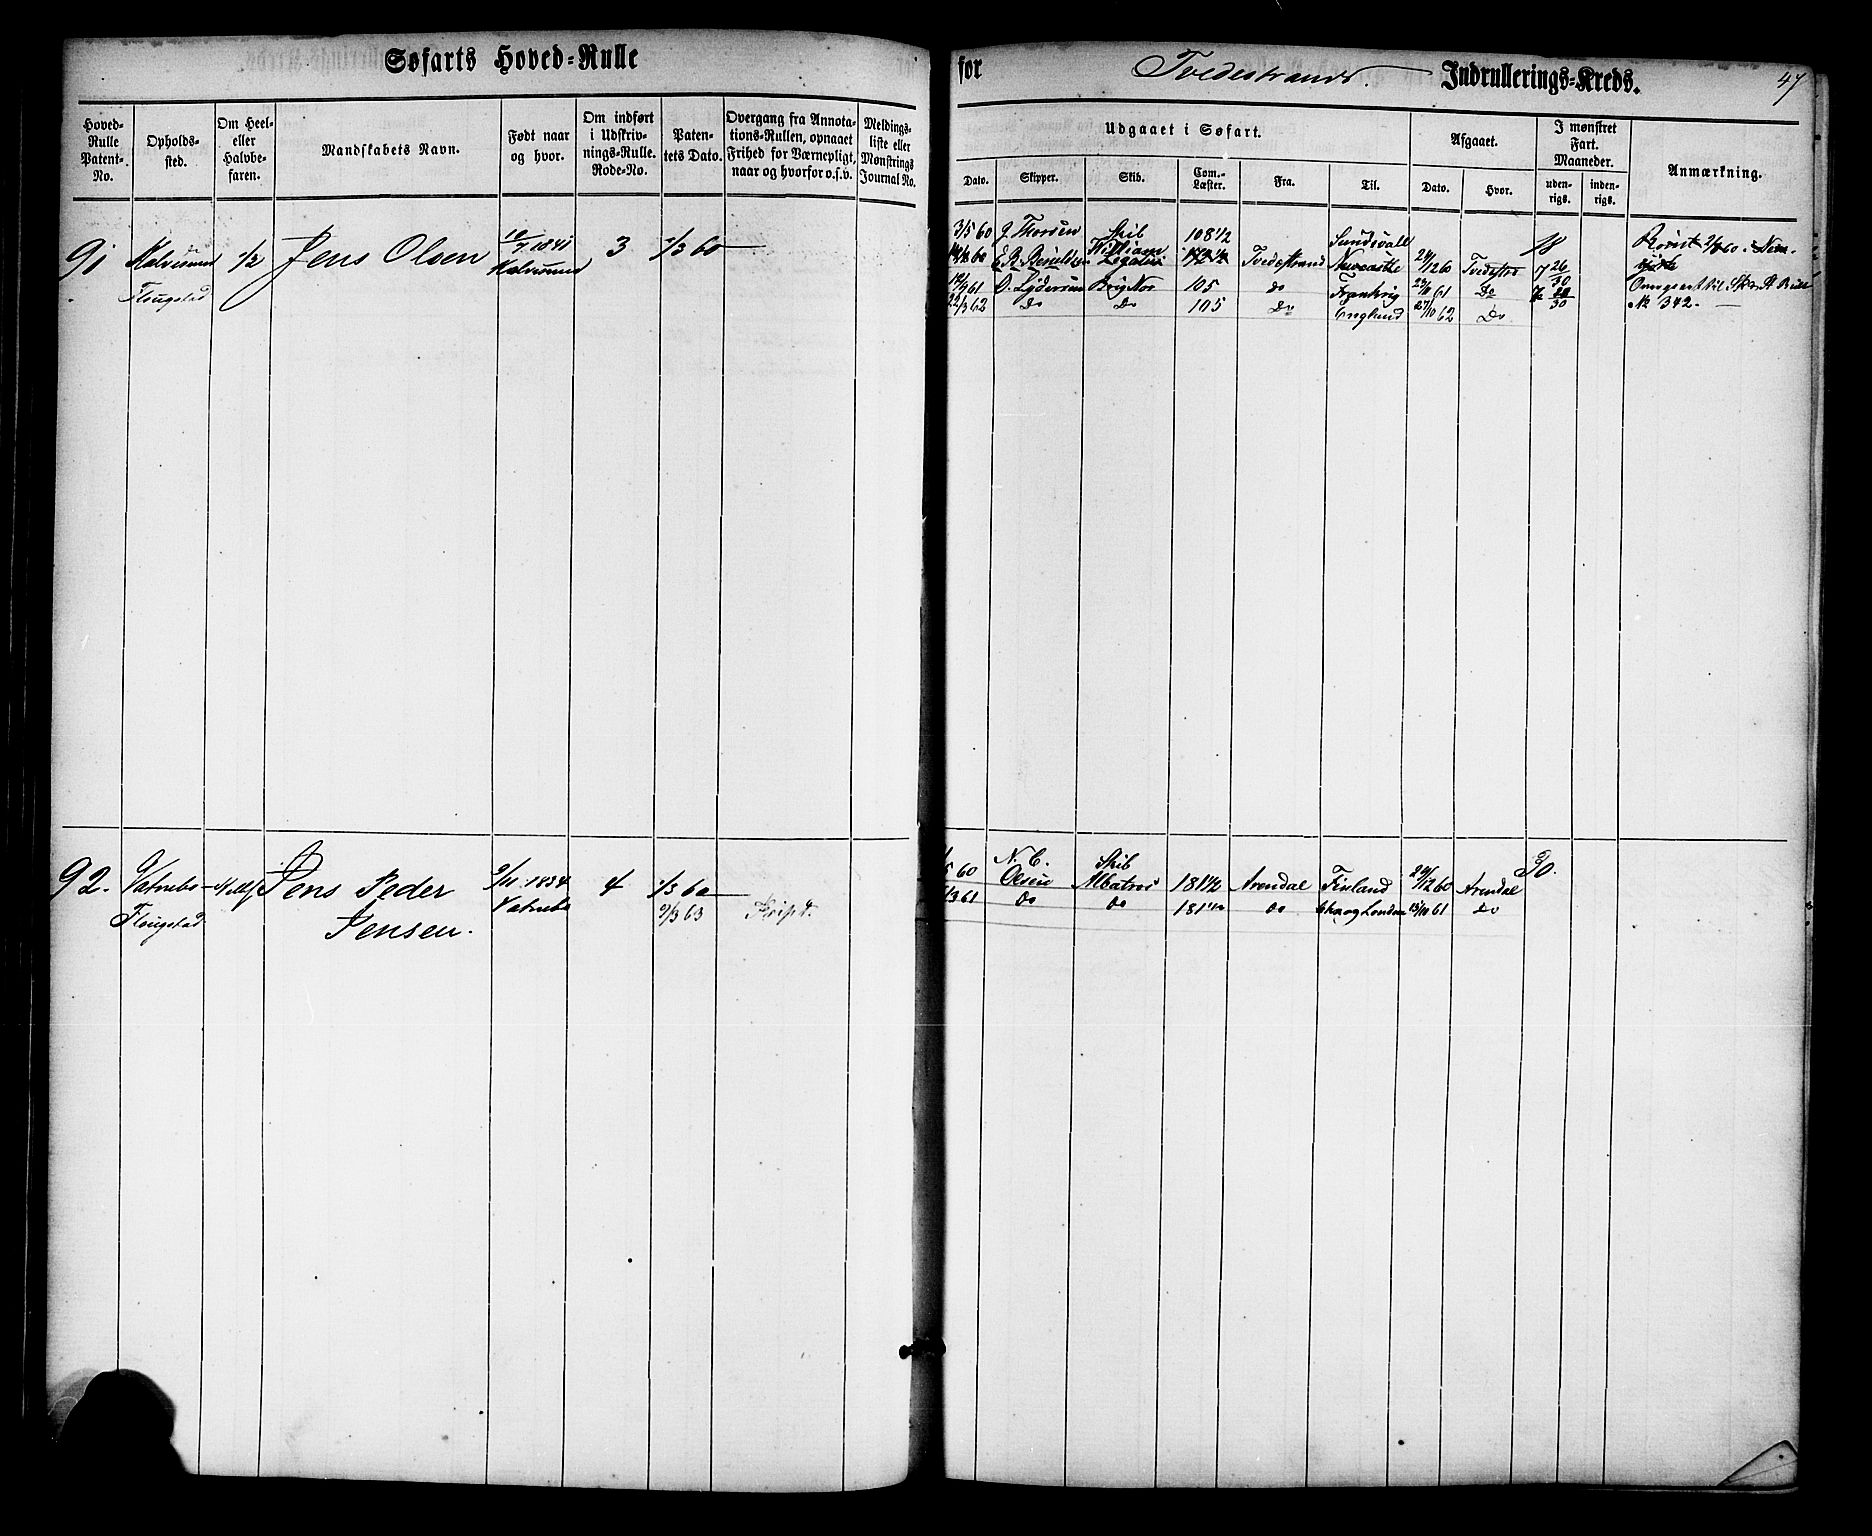 Søfarts Hoved-Rulle
Hoved-Rulle Patent-No.
Opholdssted.
Om Heel- eller Halvbefaren.
Mandskabets Navn.
Født naar og hvor.
Om indført i Udskrivnings-Rulle. Rode-No.
Patentets Dato.
Overgang fra Annotations-Rullen, opnaaet Frihed for Værnepligt, naar og hvorfor o.s.v.
Meldingsliste eller Mønstrings Journal No.
91 1/2 Jens Olsen 10/7 1841 3 1/3 60
Flougstad
92. Vatnebo Jens Peder 4 1/3 60
Flougstad Jensen. Vatnebo 9/3 63
for Tvedestrands Indrullerings-Kreds. 47
Udgaaet i Søfart.
Afgaaet.
I mønstret Fart. Maaneder.
Anmærkning.
Dato. Skipper. Skib. Com.-Læster. Fra. Til. Dato. Hvor. udenrigs. indenrigs.
3/5 60 J. Thorsen Skib William 108 1/2 Sundsvall 18
Tvedestrand Newcastle 24/12 60 Tvedestr 7 26/30
61 O. Lydersen Brig Nor 105 do Frankrig 61 Do
22/3 62 Do Do 105 Do England 27/10 62 Do No 342.
5 60 N. C. Olsen Skib Albatros 181 1/2 Arendal Finland 20/12 60 Arendal 30.
3 61 Do Do 181 1/2 do og London 61 Do